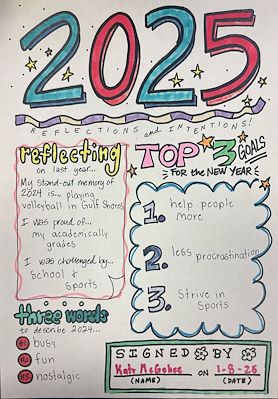 2025
REFLECTIONS and INTENTIONS!
reflecting
on last year...
My stand-out memory of
2024 is... playing
volleyball in Gulf Shores
I was proud of...
my academically
grades
I was challenged by...
School &
Sports
three words
to describe 2024...
#1 busy
#2 fun
#3 nostalgic
TOP 3 GOALS
FOR the NEW YEAR
1. help people
more
2. less procrastination
3. Strive in
Sports
SIGNED BY
Katy McGehee ON 1-8-25
(NAME) (DATE)